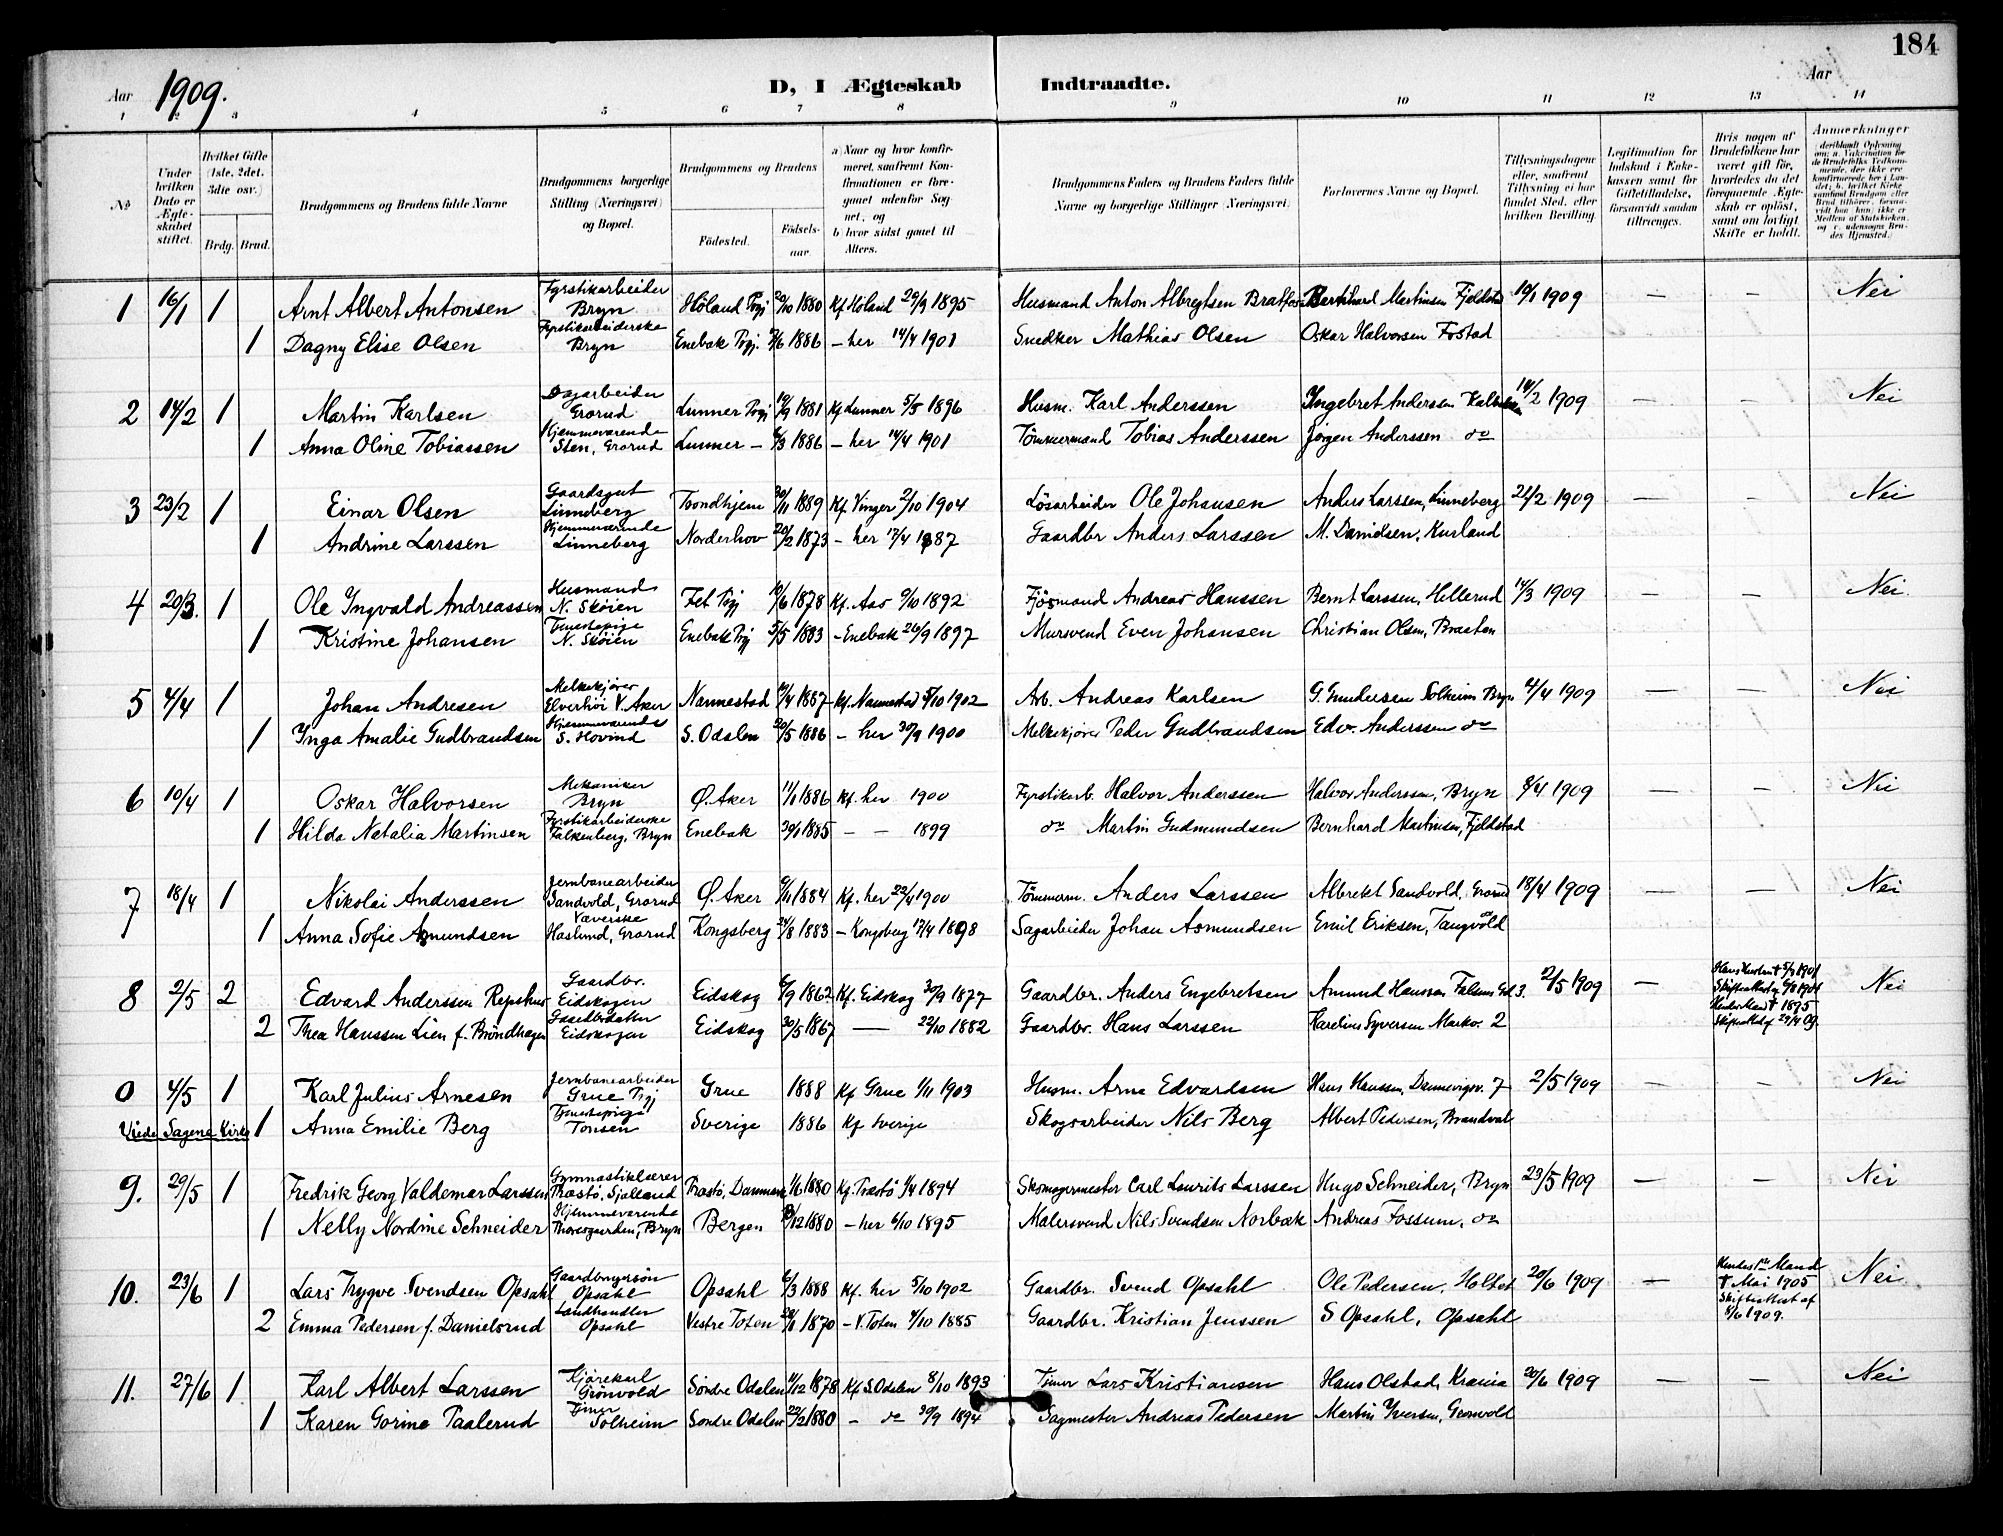 184
Aar 1909. D, I Ægteskab Indtraadte. Aar
1 2 3 4 5 6 7 8 9 10 11 12 13 14
No.
Under hvilken Dato er Ægteskabet stiftet.
Hvilket Gifte (1ste, 2det, 3die osv.)
Brdg. Brud.
Brudgommens og Brudens fulde Navne
Brudgommens borgerlige Stilling (Næringsvei) og Bopæl.
Brudgommens og Brudens
Fødested. Fødselsaar.
a) Naar og hvor konfirmeret, saafremt Konfirmationen er foregaaet udenfor Sognet, og
b) hvor sidst gaaet til Alters.
Brudgommens Faders og Brudens Faders fulde Navne og borgerlige Stillinger (Næringsvei)
Forlovernes Navne og Bopæl.
Tillysningsdagene eller, saafremt Tillysning ei har fundet Sted, efter hvilken Bevilling.
Legitimation for Indskud i Enkekassen samt for Giftetilladelse, forsaavidt saadan tiltrænges.
Hvis nogen af Brudefolkene har været gift før, hvorledes da det foregaaende Ægteskab er opløst, samt om lovligt Skifte er holdt.
Anmerkninger
1 16/1 1 Arnt Albert Antonsen Fyrstikarbeider Bryn Höland Prgj 20/10 1880 Kf Höland 29/9 1895 Husmand Anton Albregtsen Bratfoss Bernhard Martinsen Fjeldstad 10/1 1909 — — Nei
1 Dagny Elise Olsen Fyrstikarbeiderske Bryn Enebak Prgj. 1886 – her 14/4 1901 Snedker Mathias Olsen Oskar Halvorsen Fostad
2 14/2 1 Martin Karlsen Dagarbeider Grorud Lunner Prgj 19/9 1881 Kf Lunner 5/5 1896 Husm. Karl Anderssen Ingebret Anderssen 14/2 1909 — — Nei
1 Anna Oline Tobiassen Hjemmeværende Sten, Grorud Lunner – 1886 – her 14/4 1901 Tömmermand Tobias Anderssen Jørgen Anderssen do
3 23/2 1 Einar Olsen Gaardsgut Linneberg Trondhjem 30/11 1889 Kf. Vinger 2/10 1904 Lösarbeider Ole Johansen Anders Larssen, Linneberg 21/2 1909 — — Nei
1 Andrine Larssen Hjemmeværende Linneberg Norderhov 20/2 1873 – her 17/4 1887 Gaardbr Anders Larssen M. Davidsen, Kurland
4 20/3. 1 Ole Ingvald Andreassen Husmand N. Skøien Fet Prgj 10/6 1878 Kf. Aas 9/10 1892 Fjösmand Andreas Hanssen Bernt Larssen, Hellerud 14/3 1909 — — Nei.
1 Kristine Johansen Tjenestepige N. Skøien Enebak Prgj 5/5 1883 – Enebak 26/9 1897 Mursvend Even Johansen Christian Olsen, Braaten
5 4/4 1 Johan Andresen Melkekjører Elverhöi V. Aker Nannestad 1887 Kf. Nannestad 5/10 1902 Arb. Andreas Karlsen G. Gundersen Solheim Bryn 4/4 1909 — — Nei
1 Inga Amalie Gudbrandsen Hjemmeværende S. Hovind S. Odalen 20/5 1886 – her 30/9 1900 Melkekjører Peder Gudbrandsen Edv. Anderssen do
6 10/4 1 Oskar Halvorsen Mekaniker Bryn Ø. Aker 11/1 1886 Kf. her 1900 Fyrstikarb. Halvor Anderssen Halvor Anderssen, Bryn 8/4 1909 — — Nei
1 Hilda Natalia Martinsen Fyrstikarbeiderske Falkenberg, Bryn Enebak 30/1 1885 – – 1899 do Martin Gudmundsen Bernhard Martinsen, Fjeldstad
7 18/4 1 Nikolai Anderssen Jernbanearbeider Sandvold, Grorud Ø. Aker 1884 Kf. her 22/4 1900 Tömmerm. Anders Larssen Albrekt Sandvold, Grorud 18/4 1909 — — Nei
1 Anna Sofie Asmundsen Væverske Haslund, Grorud Kongsberg 24/8 1883 – Kongsberg 17/4 1898 Sagarbeider Johan Asmundsen Emil Eriksen, Tangvold
8 2/5 2 Edvard Anderssen Repshus Gaardbr. Eidskogen Eidskog 1862 Kf. Eidskog 30/9 1877 Gaardbr. Anders Engebretsen Amund Hanssen 3. 2/5 1909 — Nei
2 Thea Hanssen Lien f. Brøndhagen Eidskogen Eidskog 30/5 1867 — 22/10 1882 Gaardbr. Hans Larssen Karelius Syversen Markv. 2
Hans Hustru † 5/9 1901
Hendes Mand † 1895
Skifteattest af 29/4 09.
0 4/5 1 Karl Julius Arnesen Jernbanearbeider Grue Prgj Grue 1888 Kf Grue 1/11 1903 Husm. Arne Edvardsen Hans Hanssen, Dannevigsv. 7 2/5 1909 — — Nei
Viede Sagene Kirke 1 Anna Emilie Berg Tjenestepige Tonsen Sverige 1886 Kf Sverige Skogsarbeider Nils Berg Albert Pedersen, Brandval
9. 29/5 1 Fredrik Georg Valdemar Larssen Gymnastiklærer Præstö, Sjælland Præstö, Danmark 1/6 1880 Kf. Præstö 1/4 1894 Skomagermester Carl Laurits Larssen Hugo Schneider, Bryn 23/5 1909 — — Nei
1 Nelly Nordine Schneider Hjemmeværende Thoresgaarden, Bryn Bergen 1880 – her 6/10 1895 Malersvend Nils Svendsen Norbæk Andreas Fossum, do
10. 23/6 1 Lars Trygve Svendsen Opsahl Gaardbrugersøn Opsahl Opsahl 6/3 1888 Kf. her 5/10 1902 Gaardbr. Svend Opsahl Ole Pedersen, Holtet 20/6 1909 — Nei
2 Emma Pedersen f. Danielsrud Landhandler Opsahl Vestre Toten 1870 – V. Toten 4/10 1885 Gaardbr. Kristian Jenssen S Opsahl, Opsahl
Hendes 1ste Mand † Mai 1905 Skifteattest af 8/6 1909.
11. 27/6 1 Karl Albert Larssen Kjørekarl Grönvold Søndre Odalen 11/12 1878 Kf S. Odalen 8/10 1893 Lars Kristiansen Hans Olstad, Krania 20/6 1909 — — Nei
1 Karen Gorine Paalerud Solheim Søndre Odalen 22/2 1880 – do 30/9 1894 Sagmester Andreas Pedersen Martin Iversen, Grønvold